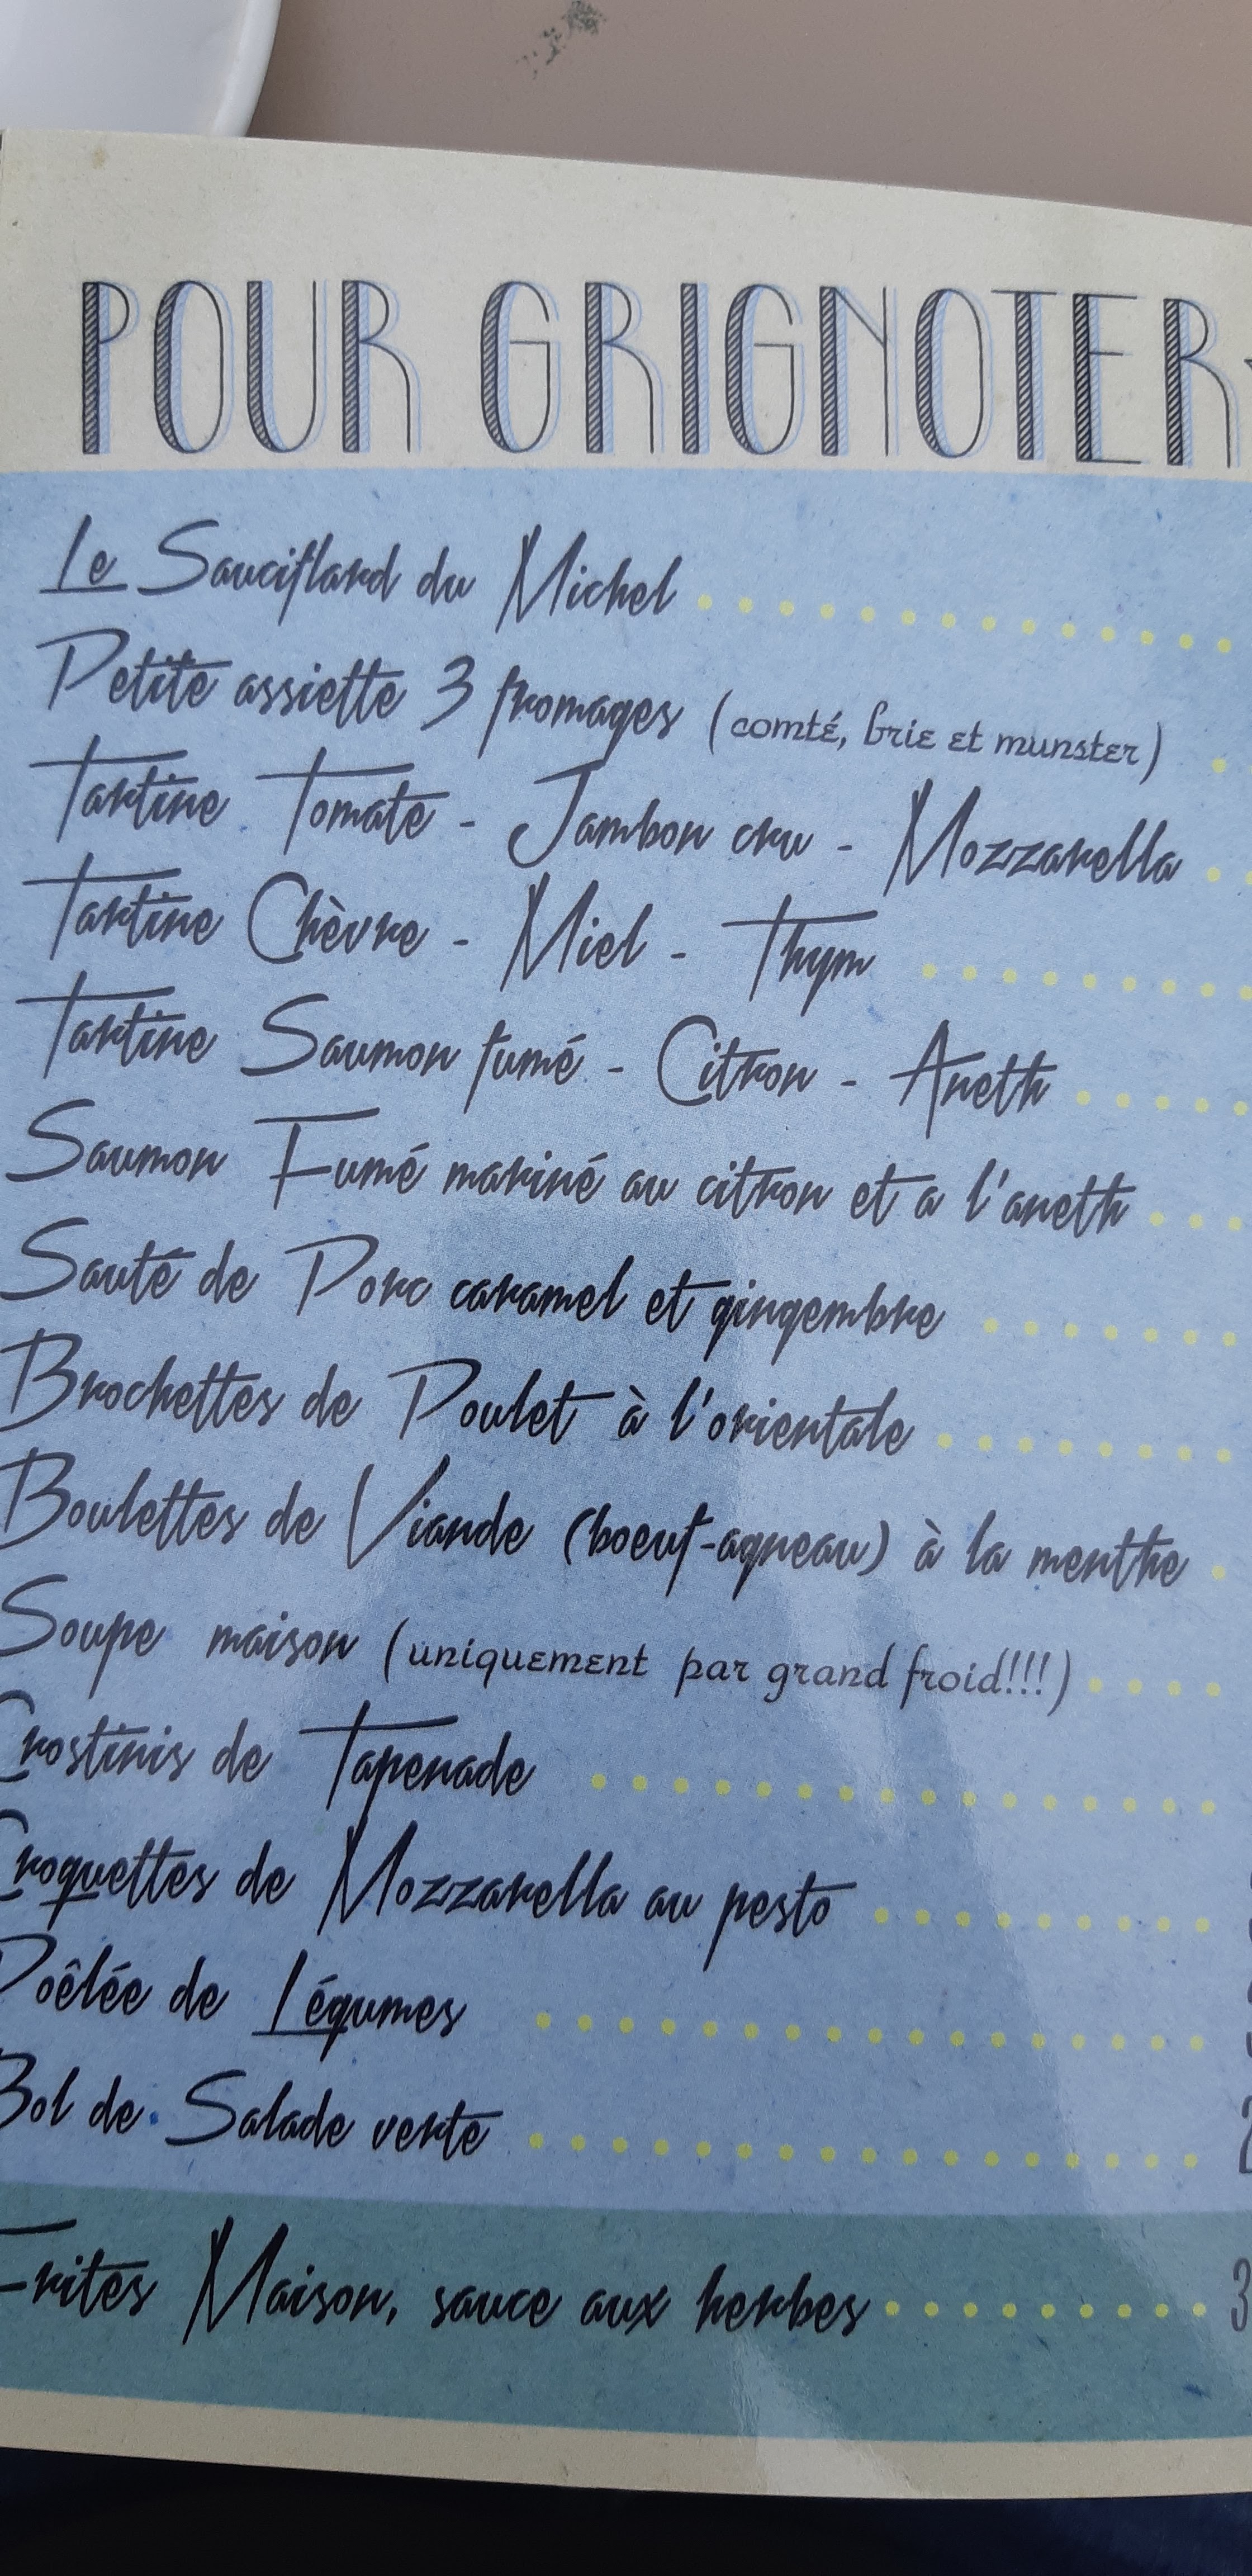 POUR GRIGNOTER
Le Sauciflard du Michel
Petite assiette 3 fromages (comté, brie et munster)
Tartine Tomate - Jambon cru - Mozzarella
Tartine Chèvre - Miel - Thym
Tartine Saumon fumé - Citron - Aneth
Saumon Fumé mariné au citron et a l'aneth
Sauté de Porc caramel et gingembre
Brochettes de Poulet à l'orientale
Boulettes de Viande (boeuf-agneau) à la menthe
Soupe maison (uniquement par grand froid!!!)
Crostinis de Tapenade
Croquettes de Mozzarella au pesto
Poêlée de Légumes
Bol de Salade verte
Frites Maison, sauce aux herbes 3